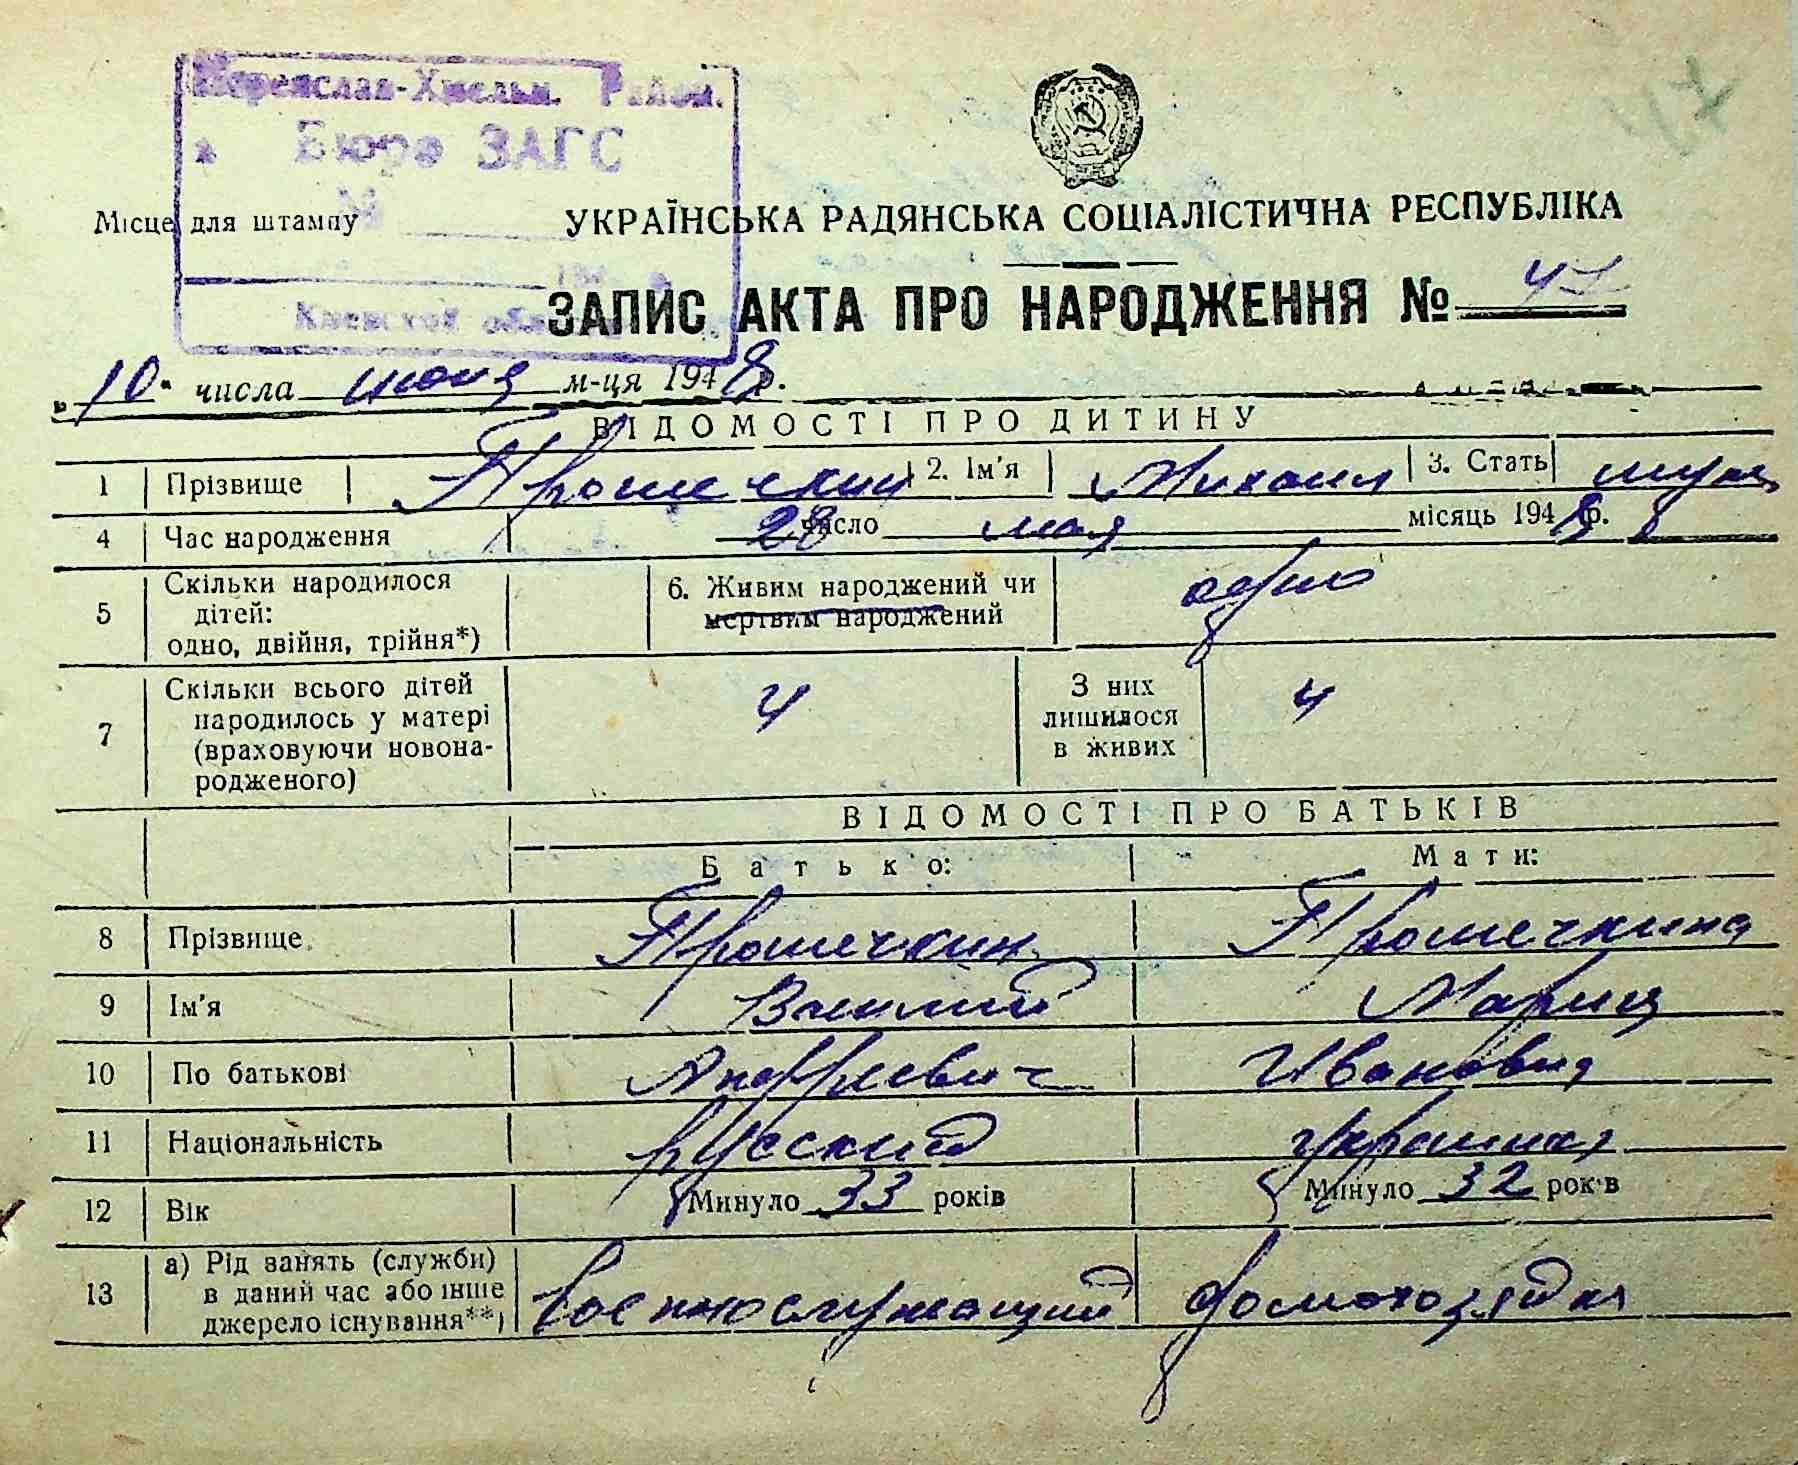 Переяслав-Хмельн. Район.
Бюро ЗАГС
№
Місце для штампу
УКРАЇНСЬКА РАДЯНСЬКА СОЦІАЛІСТИЧНА РЕСПУБЛІКА
Киевской обл.
ЗАПИС АКТА ПРО НАРОДЖЕННЯ № 47
„10" числа июня м-ця 1948 р.
ВІДОМОСТІ ПРО ДИТИНУ
1 Прізвище Прошечкин 2. Ім'я Михаил 3. Стать муж
4 Час народження 28 число мая місяць 1948 р.
5 Скільки народилося дітей: одно, двійня, трійня*) 6. Живим народжений чи мертвим народжений одно
7 Скільки всього дітей народилось у матері (враховуючи новонародженого) 4 З них лишилося в живих 4
ВІДОМОСТІ ПРО БАТЬКІВ
Батько: Мати:
8 Прізвище Прошечкин Прошечкина
9 Ім'я Василий Мария
10 По батькові Андреевич Ивановна
11 Національність русский украинка
12 Вік Минуло 33 років Минуло 32 років
13 а) Рід занять (служби) в даний час або інше джерело існування**) военнослужащий домохозяйка